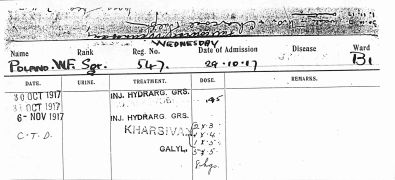 WEDNESDAY
Name Rank Reg. No. Date of Admission Disease Ward
Poland. W.F. Sgr. 547. 29.10.17 B1
DATE. URINE. TREATMENT. DOSE. REMARKS.
30 OCT 1917 INJ. HYDRARG. GRS.
31 OCT 1917
6- NOV 1917 INJ. HYDRARG. GRS.
C.T.D. KHARSIVAN 2 x 3
1 x 4
1 x 5
GALYL. 5 x 5